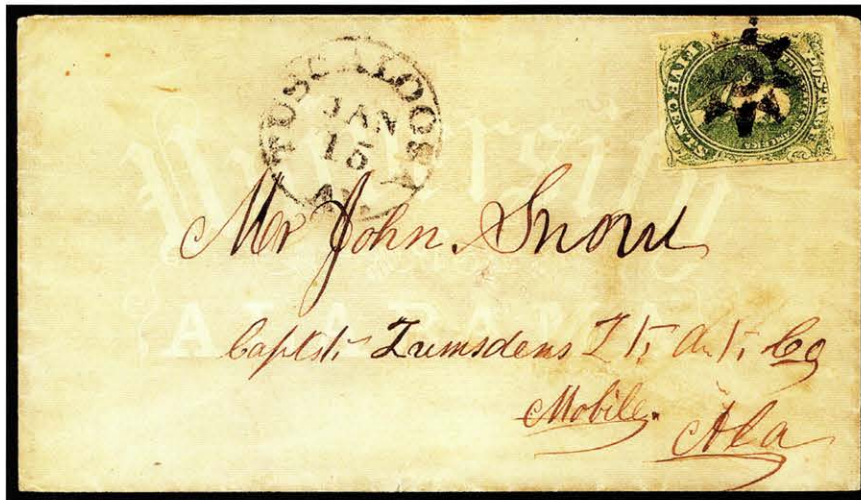 TUSCALOOSA
JAN
15
Al.
FIVE CENTS
University
ALABAMA
Mr John Snow
Lumsdens Lt, Art, Co
Mobile.
Ala